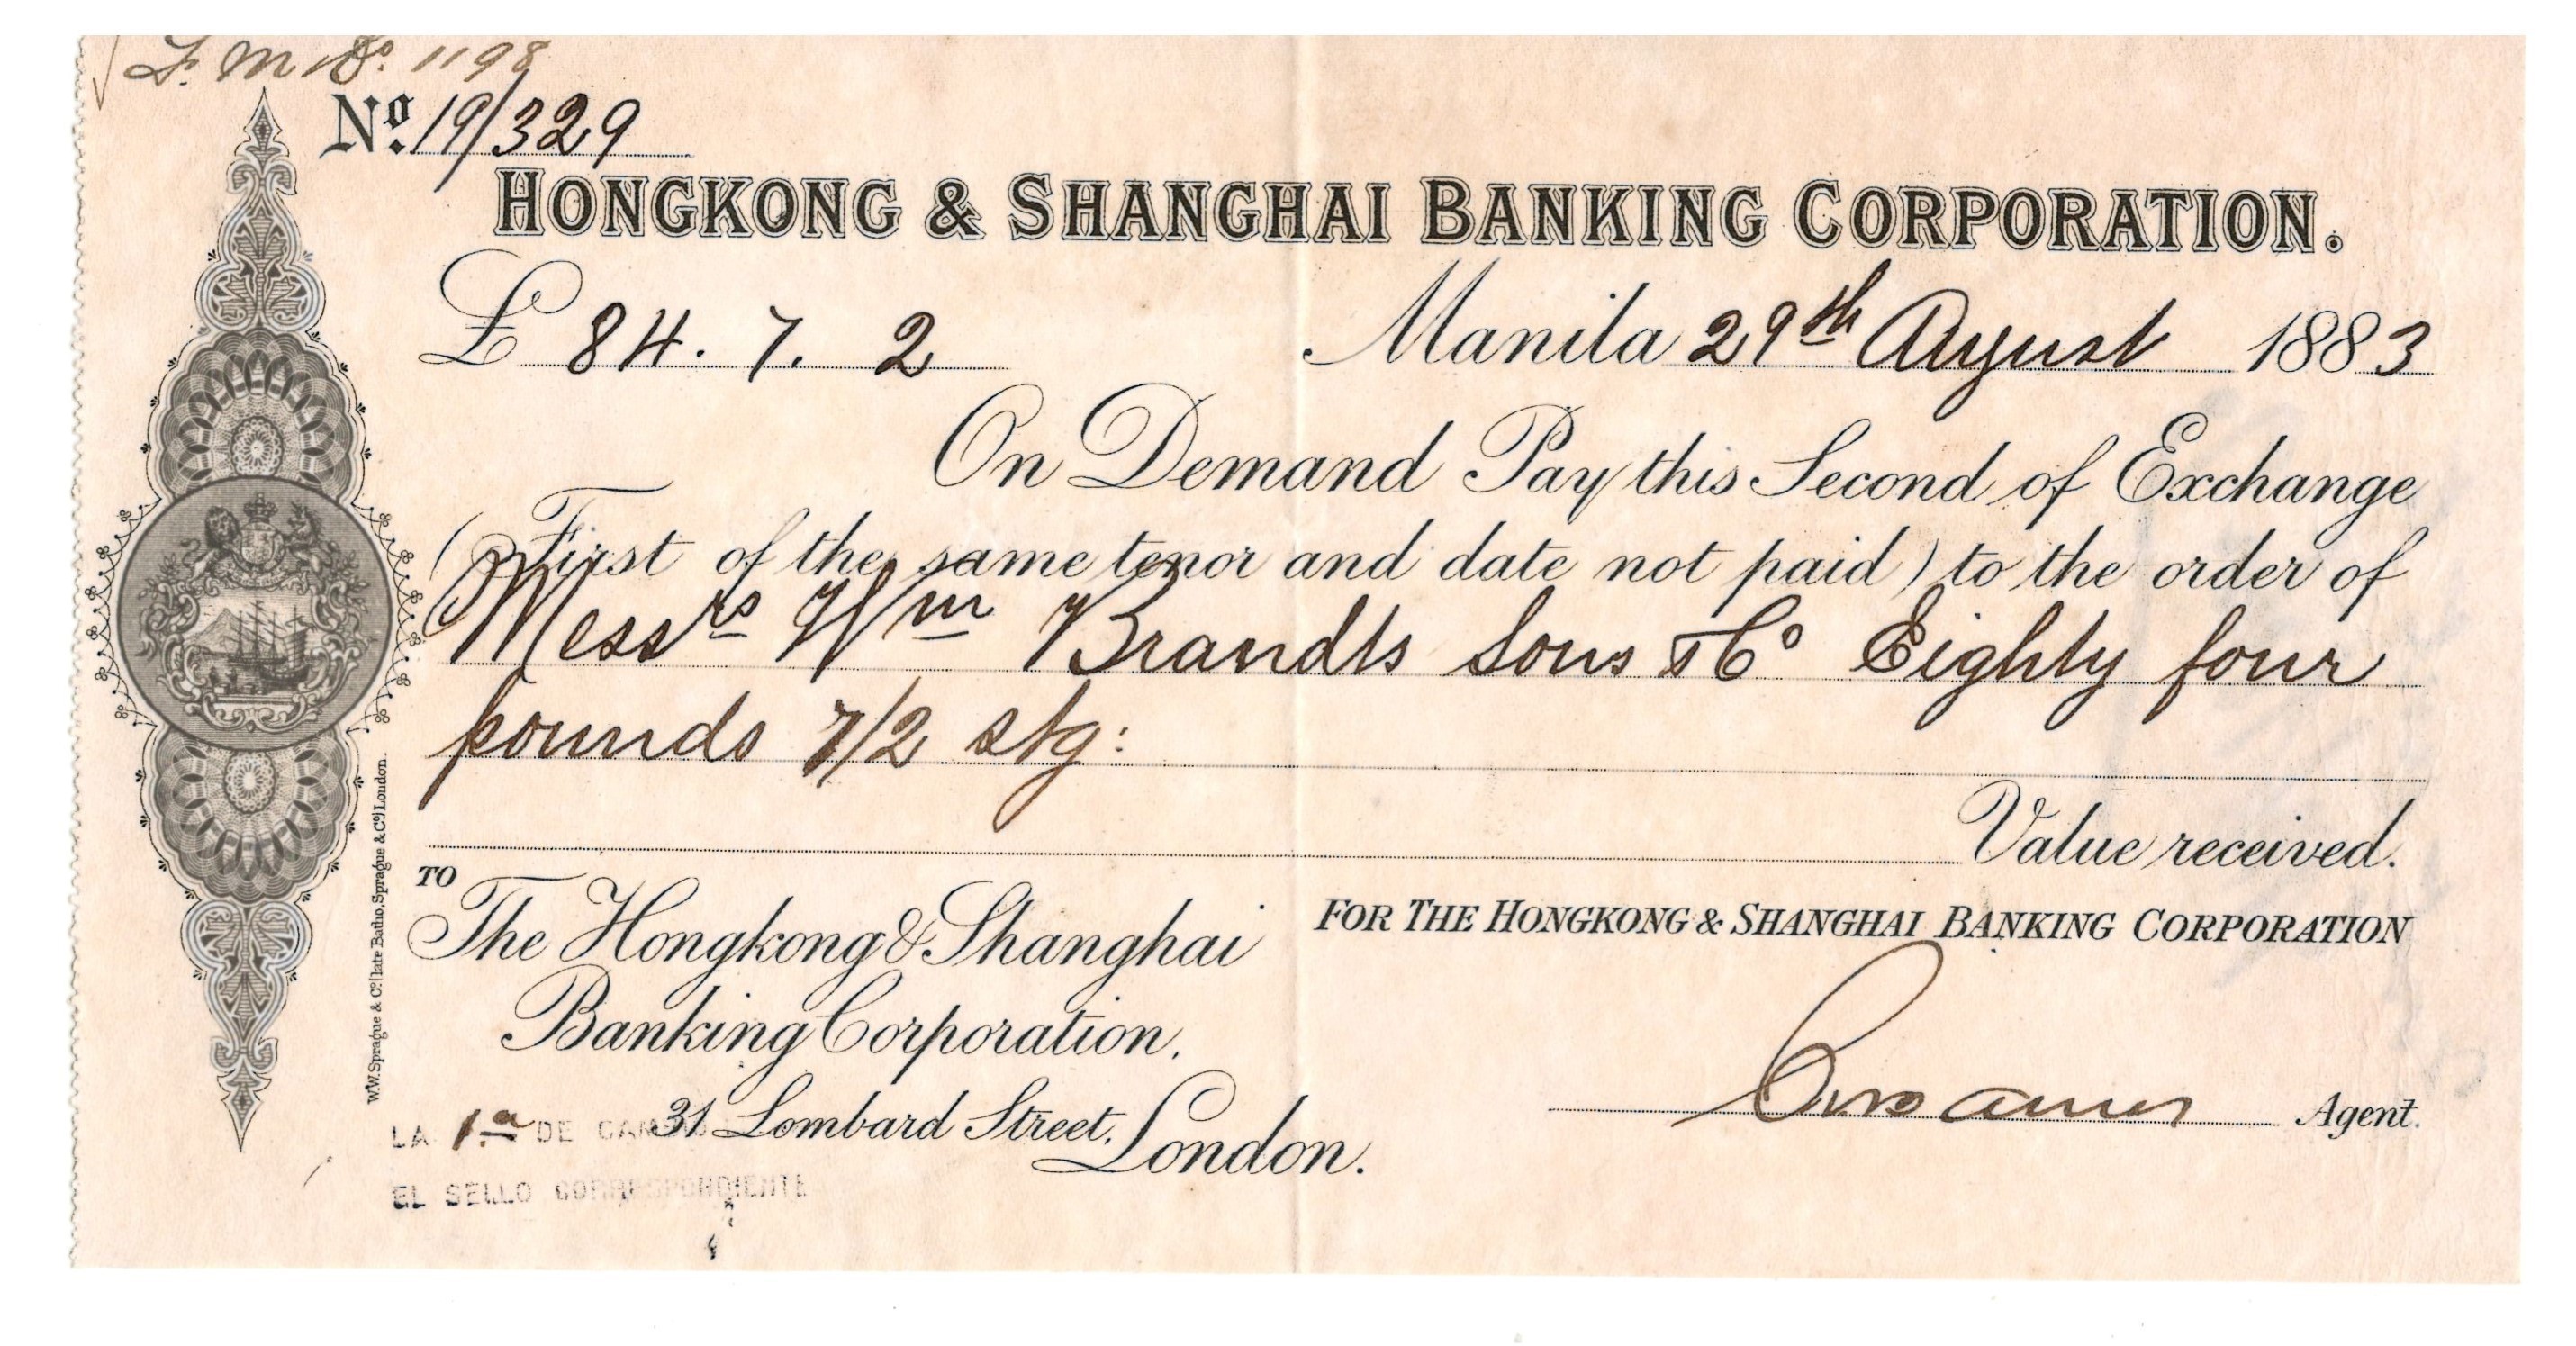 1198
No. 19/329
HONGKONG & SHANGHAI BANKING CORPORATION.
£ 84. 7. 2 Manila 29th August 1883
On Demand Pay this Second of Exchange
(First of the same tenor and date not paid) to the order of
Messrs Wm Brandts Sons & Co Eighty four
pounds 7/2 stg:
Value received.
TO
The Hongkong & Shanghai
Banking Corporation.
31 Lombard Street, London.
FOR THE HONGKONG & SHANGHAI BANKING CORPORATION
Agent.
LA 1.a DE CAMBIO
EL SELLO CORRESPONDIENTE
W.W. Sprague & Co. (late Batho, Sprague & Co.) London.